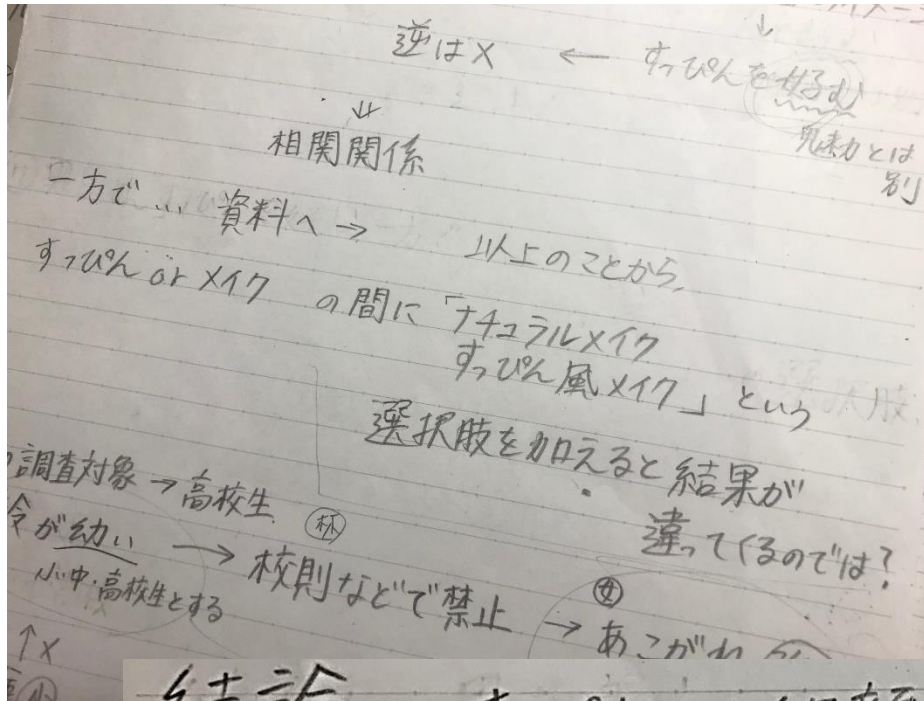 逆は× ← すっぴんを好む
↓
魅力とは
別
⇓
相関関係
一方で… 資料へ → 以上のことから、
すっぴん or メイク の間に「ナチュラルメイク
すっぴん風メイク」という
選択肢を加えると結果が
違ってくるのでは?
調査対象 → 高校生
が幼い → 校則などで禁止 → あこがれ
小中・高校生とする
女
↑×
結論